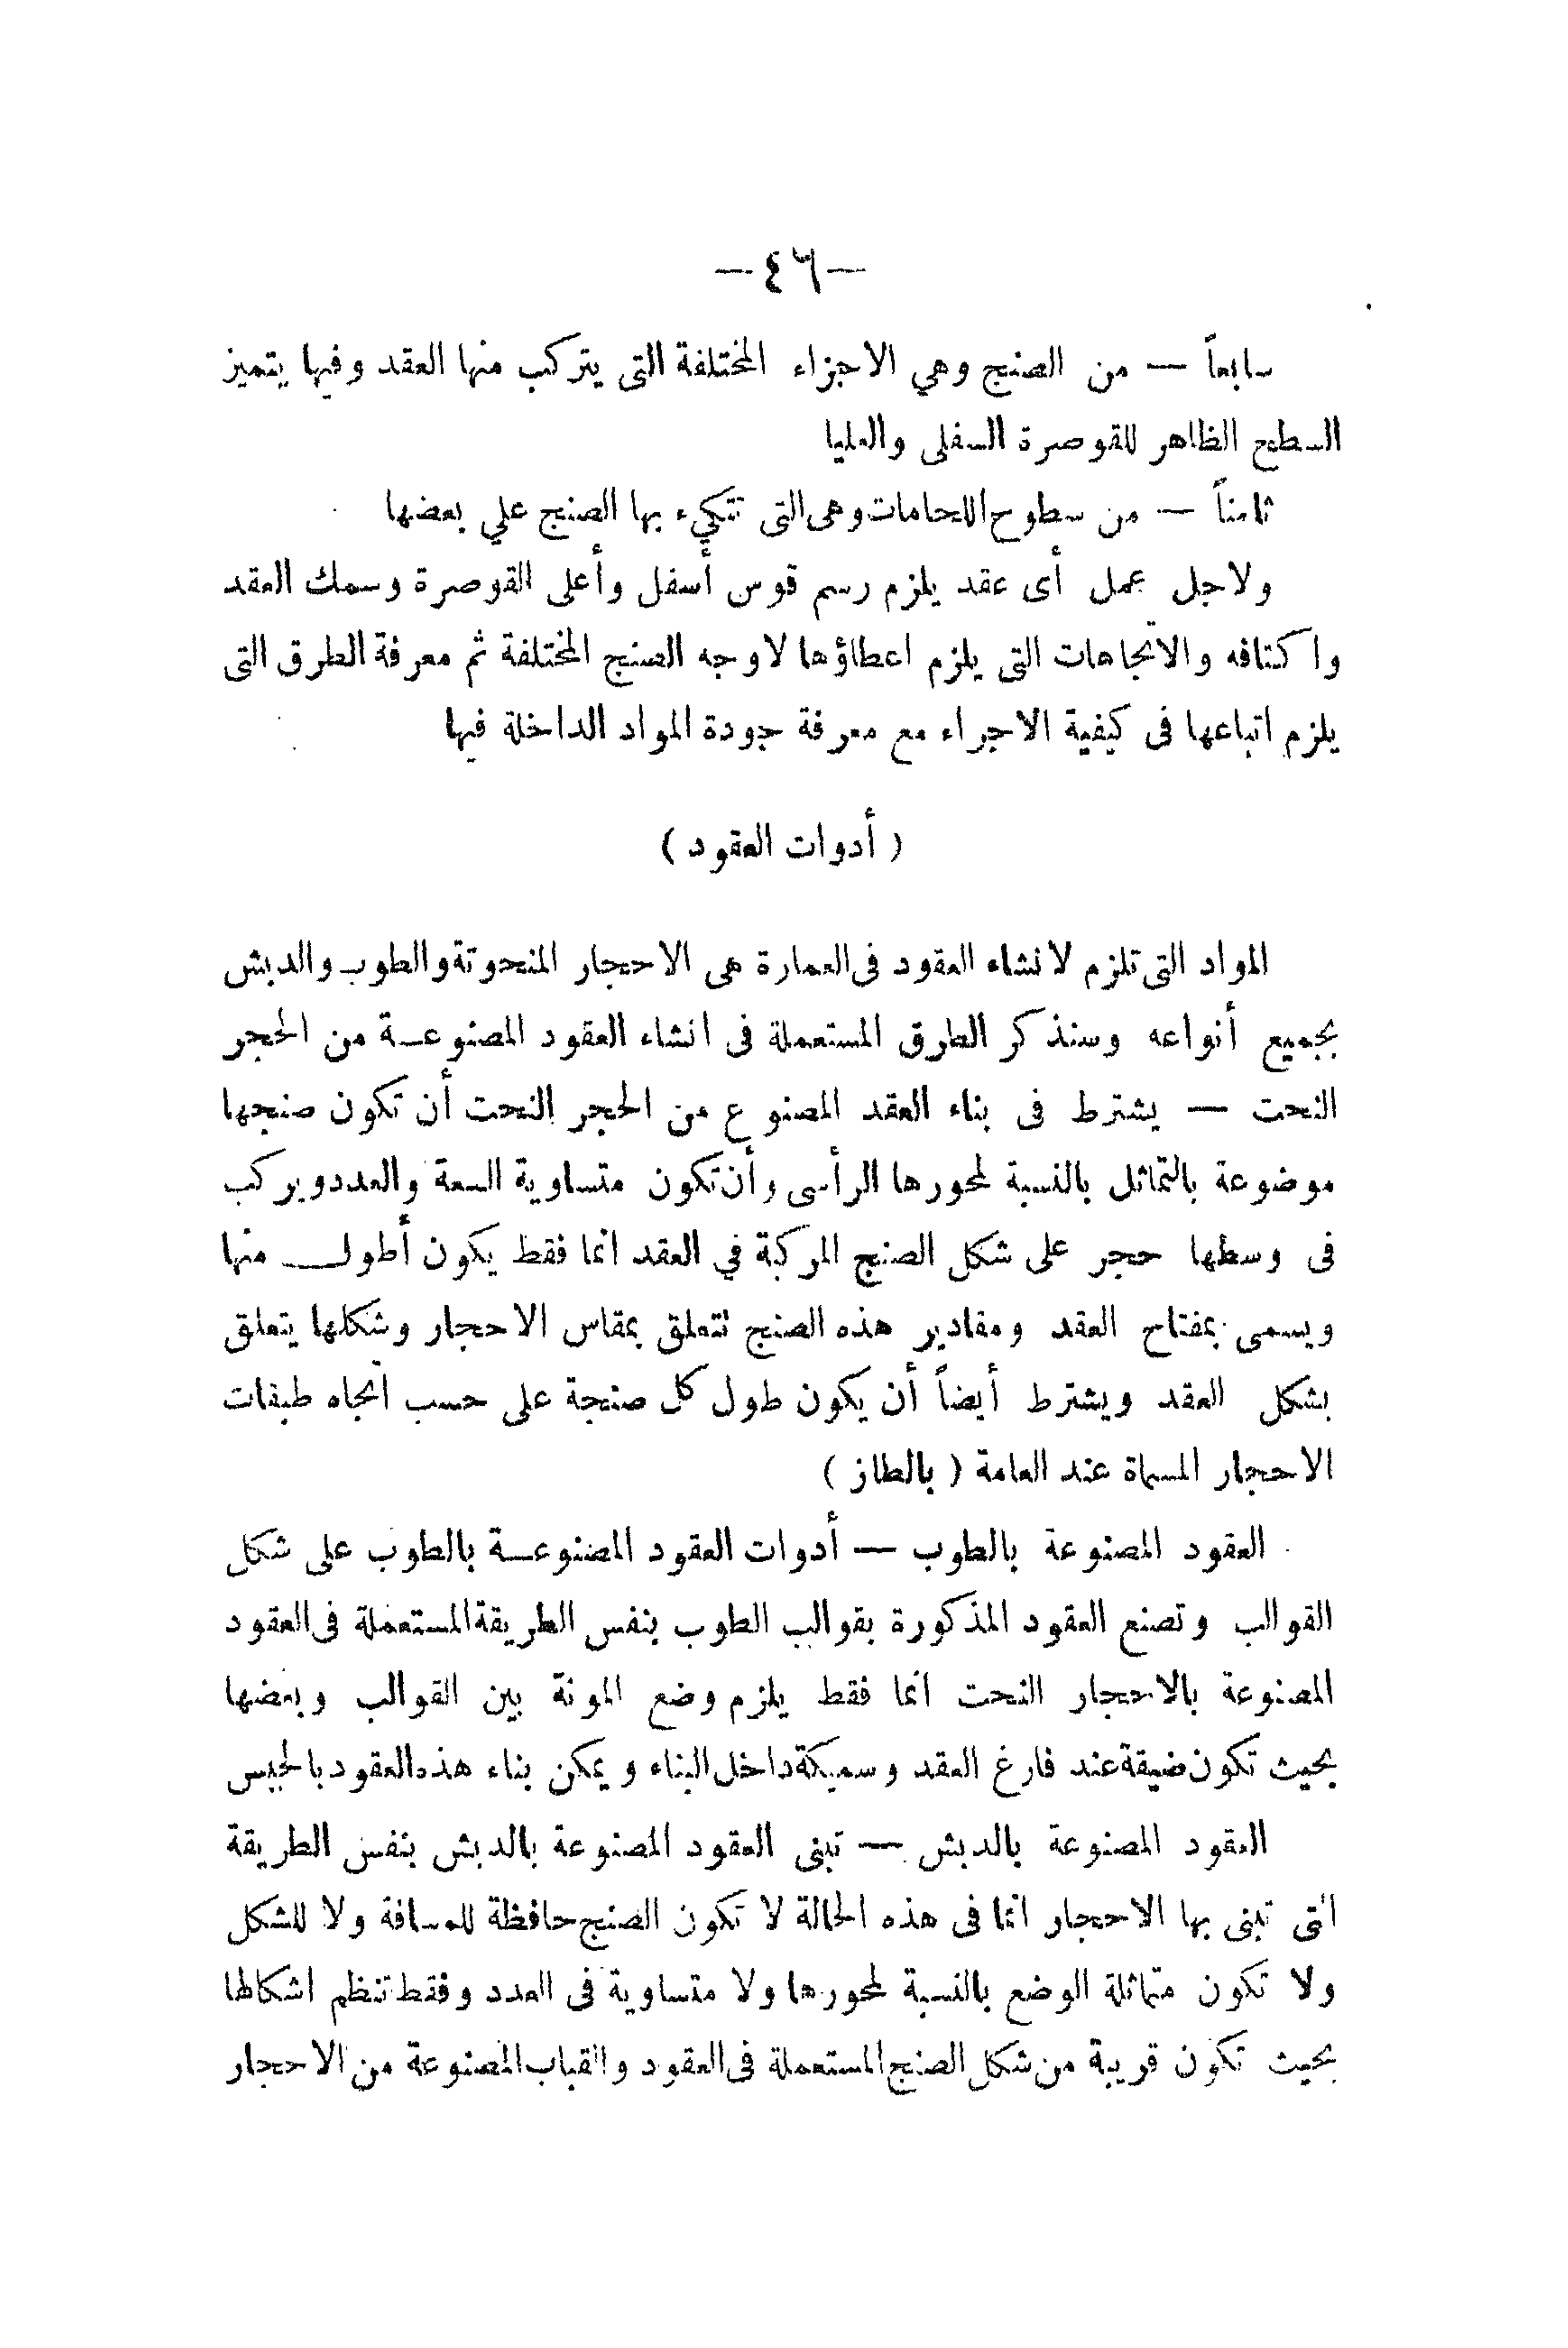 —٤٦—
سابعاً — من الصنج وهي الاجزاء المختلفة التى يتركب منها العقد وفيها يتميز
السطح الظاهر للقوصرة السفلى والعليا
ثامناً — من سطوح اللحامات وهى التى تتكيء بها الصنج علي بعضها
ولاجل عمل أى عقد يلزم رسم قوس أسفل وأعلى القوصرة وسمك العقد
واكتافه والاتجاهات التى يلزم اعطاؤها لاوجه الصنج المختلفة ثم معرفة الطرق التى
يلزم اتباعها فى كيفية الاجراء مع معرفة جودة المواد الداخلة فيها
( أدوات العقود )
المواد التى تلزم لانشاء العقود فى العمارة هى الاحجار المنحوتة والطوب والدبش
بجميع أنواعه وسنذكر الطرق المستعملة فى انشاء العقود المصنوعـة من الحجر
النحت — يشترط فى بناء العقد المصنوع من الحجر النحت أن تكون صنجها
موضوعة بالتماثل بالنسبة لمحورها الرأسى وأن تكون متساوية السعة والعدد ويركب
فى وسطها حجر على شكل الصنج المركبة في العقد انما فقط يكون أطول منها
ويسمى بمفتاح العقد ومقادير هذه الصنج تتعلق بمقاس الاحجار وشكلها يتعلق
بشكل العقد ويشترط أيضاً أن يكون طول كل صنجة على حسب اتجاه طبقات
الاحجار المسماة عند العامة ( بالطاز )
العقود المصنوعة بالطوب — أدوات العقود المصنوعـة بالطوب على شكل
القوالب وتصنع العقود المذكورة بقوالب الطوب بنفس الطريقة المستعملة فى العقود
المصنوعة بالاحجار النحت انما فقط يلزم وضع المونة بين القوالب وبعضها
بحيث تكون ضيقة عند فارغ العقد وسميكة داخل البناء ويمكن بناء هذه العقود بالجبس
العقود المصنوعة بالدبش — تبنى العقود المصنوعة بالدبش بنفس الطريقة
التى تبنى بها الاحجار انما فى هذه الحالة لا تكون الصنج حافظة للمسافة ولا للشكل
ولا تكون متماثلة الوضع بالنسبة لمحورها ولا متساوية فى العدد وفقط تنظم اشكالها
بحيث تكون قريبة من شكل الصنج المستعملة فى العقود والقباب المصنوعة من الاحجار